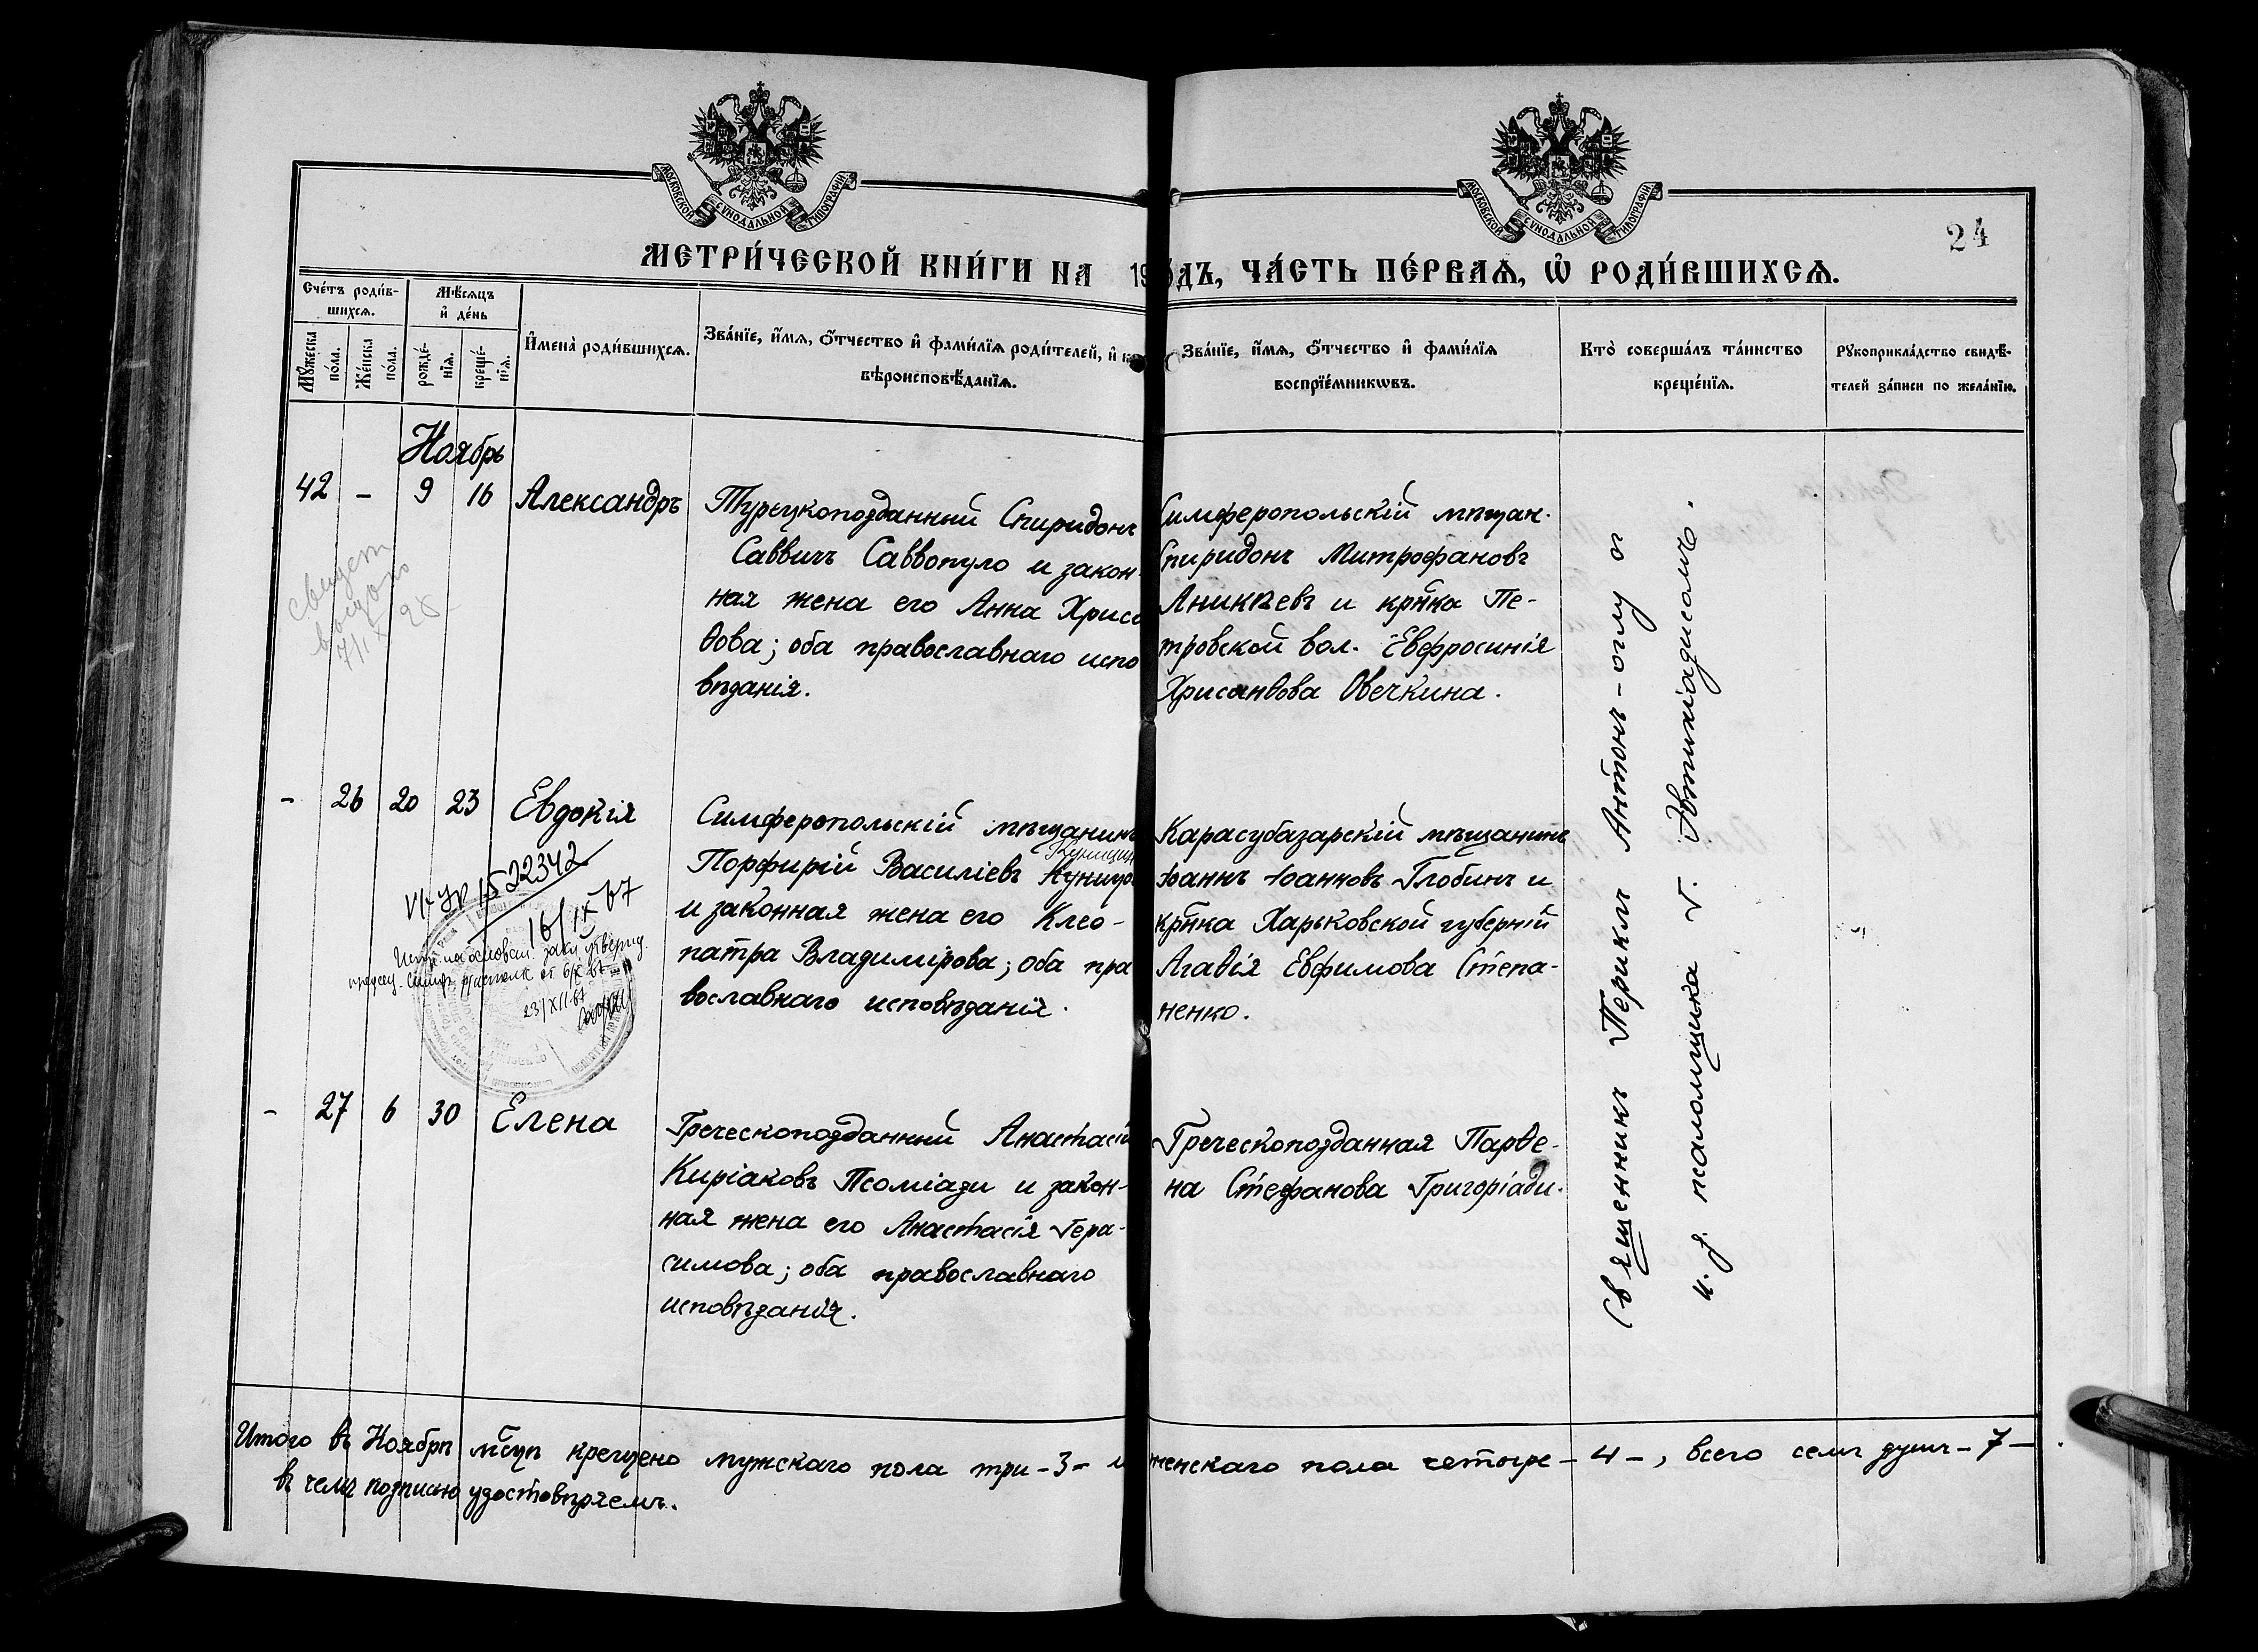 МОСКОВСКОЙ СУНОДАЛЬНОЙ ТИПОГРАФІИ
МОСКОВСКОЙ СУНОДАЛЬНОЙ ТИПОГРАФІИ
24
МЕТРИ́ЧЕСКОЙ КНИ́ГИ НА 19
О́ДЪ, ЧА́СТЬ ПЕ́РВАѦ, Ѡ҆ РОДИ́ВШИХСѦ.
Сче́тъ роди́в-
шихсѧ.
Мѣ́сѧцъ
и҆ де́нь
Мꙋ́жеска
по́ла.
Же́нска
по́ла.
рожде́-
нїѧ.
креще́-
нїѧ.
И҆мена̀ роди́вшихсѧ.
Зва́нїе, и҆́мѧ, ѻ҆́тчество и҆ фами́лїѧ роди́телей, и҆ к
вѣроисповѣ́данїѧ.
Зва́нїе, и҆́мѧ, ѻ҆́тчество и҆ фами́лїѧ
воспрїе́мникѡвъ.
Кто̀ соверша́лъ та́инство
креще́нїѧ.
Рꙋкоприкла́дство свидѣ́-
телей за́писи по жела́нїю.
Ноябрь
42 – 9 16 Александръ
Турецкоподданный Спиридонъ
Саввичъ Саввопуло и закон-
ная жена его Анна Хриса
ѳова; оба православнаго испо
вѣданія.
Симферопольскій мѣщан.
Спиридонъ Митрофановъ
Аникѣевъ и кр̃нка Пе-
тровской вол. Евфросинія
Хрисанѳова Овечкина.
свидет
выдано
7/IX 28
– 26 20 23 Евдокія
Симферопольскій мѣщанинъ
Куницын
Порфирій Василіевъ Куницо
и законная жена его Клео-
патра Владимірова; оба пра
вославнаго исповѣданія.
Карасубазарскій мѣщанинъ
Іоаннъ Іоанновъ Глобинъ и
кр̃нка Харьковской губерніи
Агаѳія Евфимова Степа-
ненко.
522342
16/IX 67
23/XII-67
– 27 6 30 Елена
Греческоподданный Анастасій
Киріаковъ Псоміади и закон-
ная жена его Анастасія Гера-
симова; оба православнаго
исповѣданія.
Греческоподданная Парѳе-
на Стефанова Григоріади.
Священникъ Периклъ Антонъ-оглу о
и. д. псаломщика Г. Автихіадисомъ.
Итого въ Ноябрѣ мс̃цѣ крещено мужскаго пола три – 3 – и
женскаго пола четыре – 4 –, всего семь душъ – 7 –.
въ чемъ подписью удостовѣряемъ.